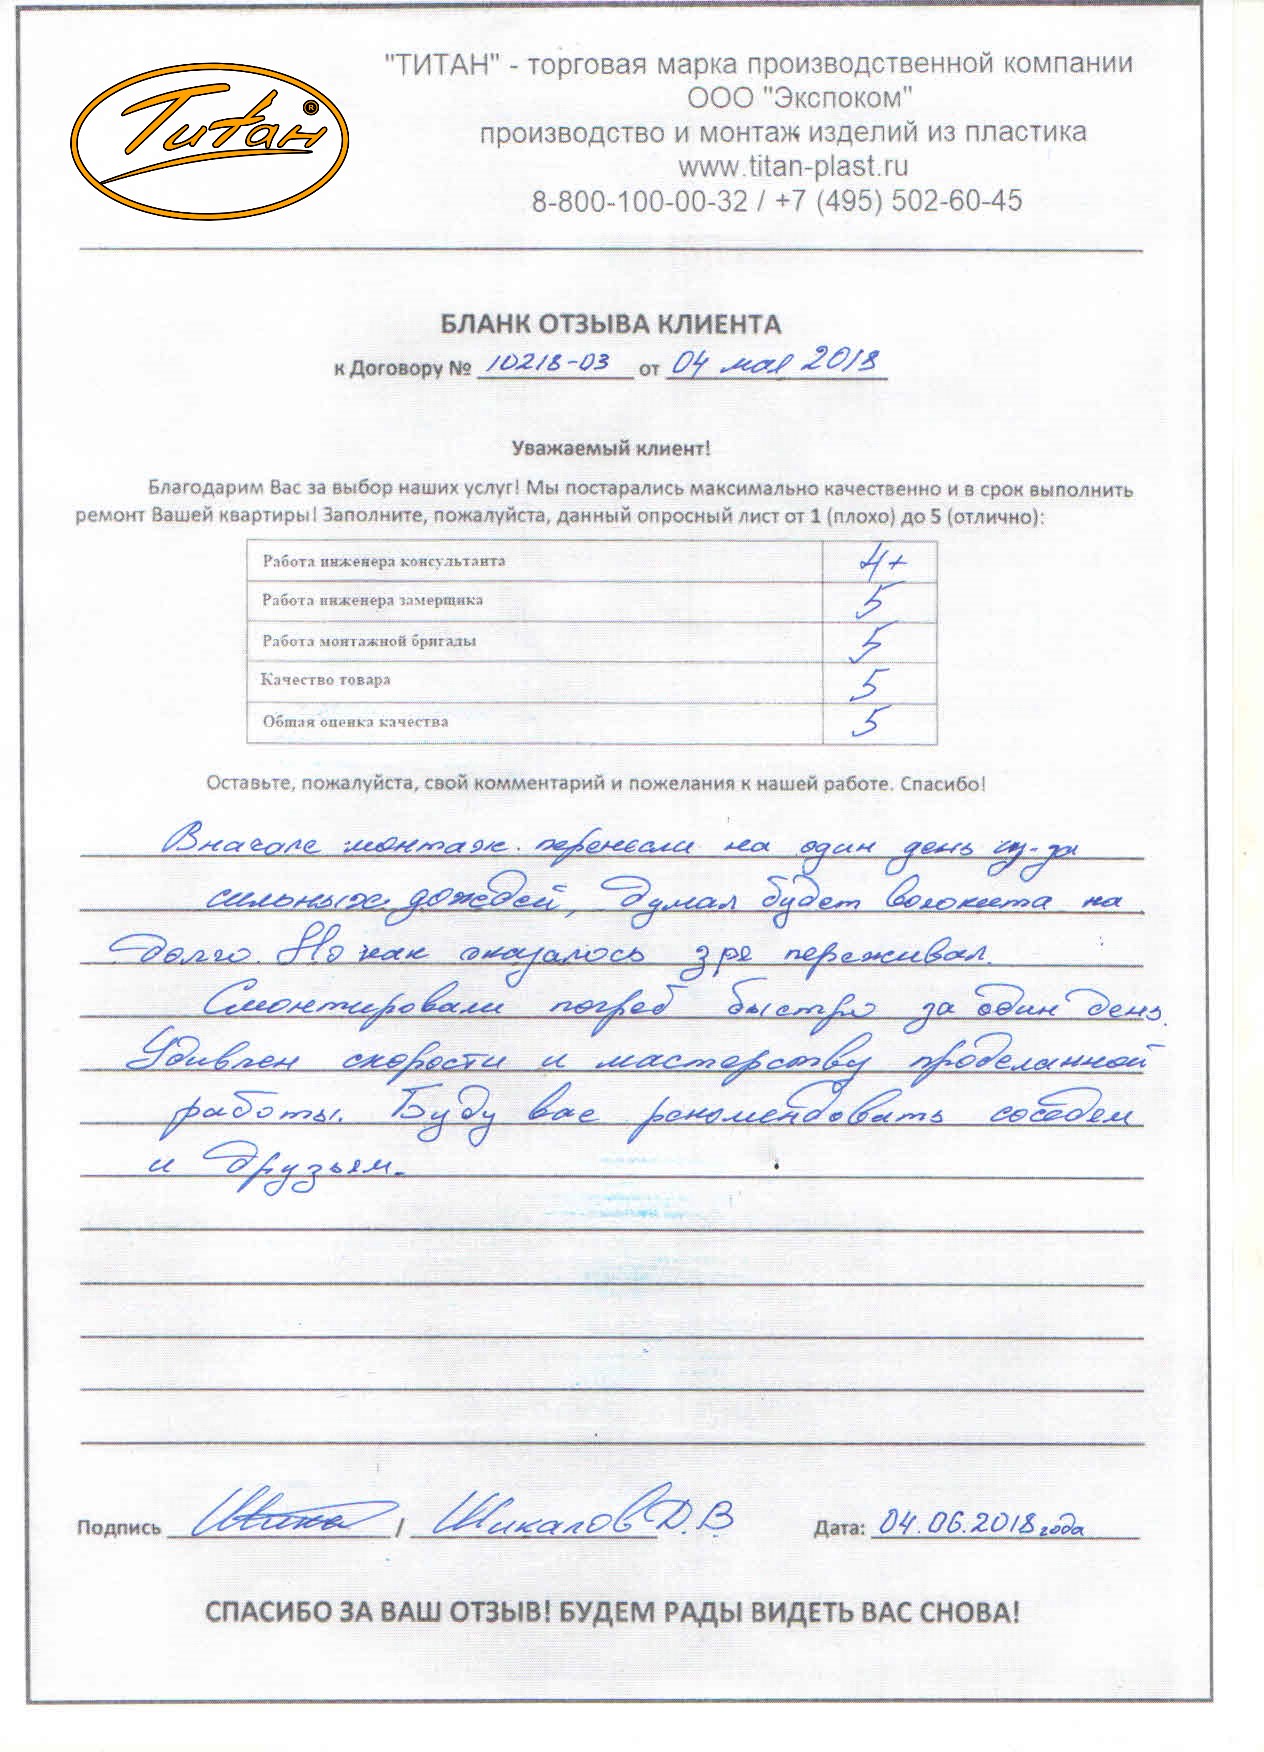 Титан ®
"ТИТАН" - торговая марка производственной компании
ООО "Экспоком"
производство и монтаж изделий из пластика
www.titan-plast.ru
8-800-100-00-32 / +7 (495) 502-60-45
БЛАНК ОТЗЫВА КЛИЕНТА
к Договору № 10218-03 от 04 мая 2018
Уважаемый клиент!
Благодарим Вас за выбор наших услуг! Мы постарались максимально качественно и в срок выполнить
ремонт Вашей квартиры! Заполните, пожалуйста, данный опросный лист от 1 (плохо) до 5 (отлично):
Работа инженера консультанта 4+
Работа инженера замерщика 5
Работа монтажной бригады 5
Качество товара 5
Общая оценка качества 5
Оставьте, пожалуйста, свой комментарий и пожелания к нашей работе. Спасибо!
Вначале монтаж перенесли на один день из-за
сильных дождей, думал будет волокита на
долго. Но как оказалось зря переживал.
Смонтировали погреб быстро за один день.
Удивлен скорости и мастерству проделанной
работы. Буду вас рекомендовать соседям
и друзьям.
Подпись / Шикалов Д.В Дата: 04.06.2018 года
СПАСИБО ЗА ВАШ ОТЗЫВ! БУДЕМ РАДЫ ВИДЕТЬ ВАС СНОВА!